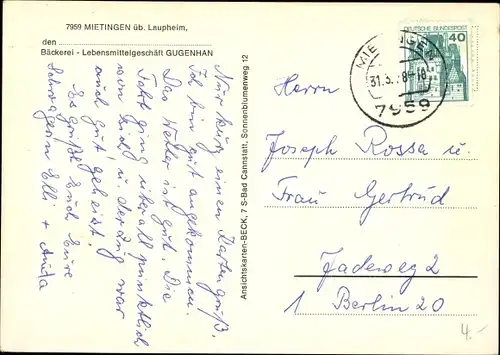 7959 MIETINGEN üb. Laupheim,
den
Bäckerei - Lebensmittelgeschäft GUGENHAN
Nur kurz einen Kartengruß.
Ich bin gut angekommen.
Das Wetter ist gut. Die
Fahrt ging überall pünktlich
von Zeit u. der Zug war
auch gut geheizt!
Es grüßt Euch Eure
Schwägerin Elli + Anita
Ansichtskarten-BECK, 7 S-Bad Cannstatt, Sonnenblumenweg 12
DEUTSCHE BUNDESPOST
40
MIETINGEN
7959
Herrn
Joseph Rossa u.
Frau Gertrud
Jadeweg 2
1 Berlin 20
4.-